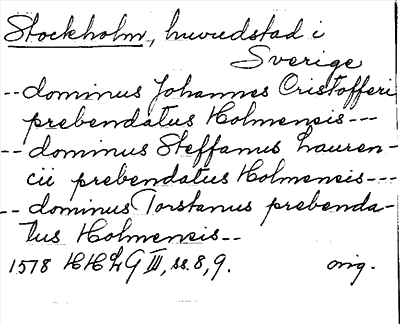 Stockholm, huvudstad i
Sverige
-- dominus Johannes Cristofferi
prebendatus Holmensis ---
-- dominus Steffanus Lauren-
cii prebendatus Holmensis ---
-- dominus Torstanus prebenda-
tus Holmensis --
1578 HHLG III, ss. 8, 9. orig.